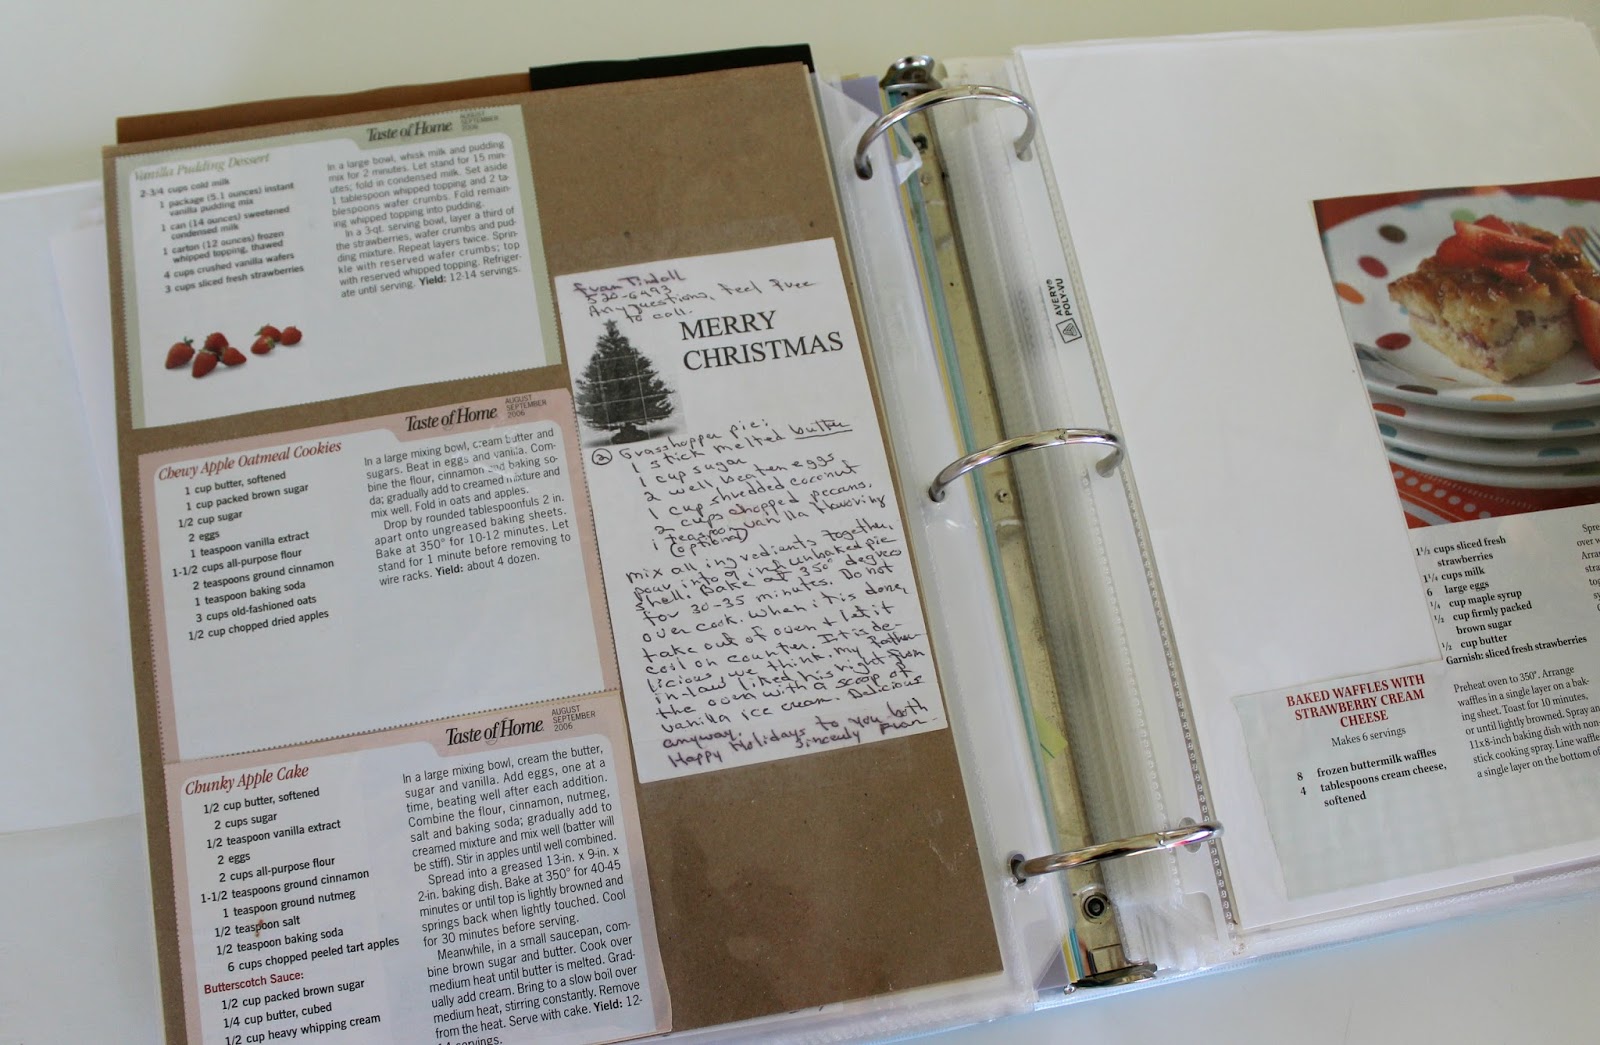 Taste of Home AUGUST SEPTEMBER 2006
Vanilla Pudding Dessert
2-3/4 cups cold milk
1 package (5.1 ounces) instant
vanilla pudding mix
1 can (14 ounces) sweetened
condensed milk
1 carton (12 ounces) frozen
whipped topping, thawed
4 cups crushed vanilla wafers
3 cups sliced fresh strawberries
In a large bowl, whisk milk and pudding
mix for 2 minutes. Let stand for 15 min-
utes; fold in condensed milk. Set aside
1 tablespoon whipped topping and 2 ta-
blespoons wafer crumbs. Fold remain-
ing whipped topping into pudding.
In a 3-qt. serving bowl, layer a third of
the strawberries, wafer crumbs and pud-
ding mixture. Repeat layers twice. Sprin-
kle with reserved wafer crumbs; top
with reserved whipped topping. Refriger-
ate until serving. Yield: 12-14 servings.
Taste of Home AUGUST SEPTEMBER 2006
Chewy Apple Oatmeal Cookies
1 cup butter, softened
1 cup packed brown sugar
1/2 cup sugar
2 eggs
1 teaspoon vanilla extract
1-1/2 cups all-purpose flour
2 teaspoons ground cinnamon
1 teaspoon baking soda
3 cups old-fashioned oats
1/2 cup chopped dried apples
In a large mixing bowl, cream butter and
sugars. Beat in eggs and vanilla. Com-
bine the flour, cinnamon and baking so-
da; gradually add to creamed mixture and
mix well. Fold in oats and apples.
Drop by rounded tablespoonfuls 2 in.
apart onto ungreased baking sheets.
Bake at 350° for 10-12 minutes. Let
stand for 1 minute before removing to
wire racks. Yield: about 4 dozen.
Taste of Home AUGUST SEPTEMBER 2006
Chunky Apple Cake
1/2 cup butter, softened
2 cups sugar
1/2 teaspoon vanilla extract
2 eggs
2 cups all-purpose flour
1-1/2 teaspoons ground cinnamon
1 teaspoon ground nutmeg
1/2 teaspoon salt
1/2 teaspoon baking soda
6 cups chopped peeled tart apples
Butterscotch Sauce:
1/2 cup packed brown sugar
1/4 cup butter, cubed
1/2 cup heavy whipping cream
In a large mixing bowl, cream the butter,
sugar and vanilla. Add eggs, one at a
time, beating well after each addition.
Combine the flour, cinnamon, nutmeg,
salt and baking soda; gradually add to
creamed mixture and mix well (batter will
be stiff). Stir in apples until well combined.
Spread into a greased 13-in. x 9-in. x
2-in. baking dish. Bake at 350° for 40-45
minutes or until top is lightly browned and
springs back when lightly touched. Cool
for 30 minutes before serving.
Meanwhile, in a small saucepan, com-
bine brown sugar and butter. Cook over
medium heat until butter is melted. Grad-
ually add cream. Bring to a slow boil over
medium heat, stirring constantly. Remove
from the heat. Serve with cake. Yield: 12-
servings.
Fran Tindall
520-6493
Any questions, feel free
to call.
MERRY
CHRISTMAS
② Grasshopper pie:
1 stick melted butter
1 cup sugar
2 well beaten eggs
1 cup shredded coconut
2 cups chopped pecans,
1 teaspoon vanilla flavoring
(optional)
mix all ingrediants together,
pour into 9 inch unbaked pie
shell. Bake at 350° degrees
for 30-35 minutes. Do not
over cook. When it is done,
take out of oven & let it
cool on counter. It is de-
licious, we think. my father-
in-law liked his right from
the oven with a scoop of
vanilla ice cream. Delicious
anyway.
Happy Holidays to you both
Sincerely Fran-
AVERY®
POLY-VU
1½ cups sliced fresh
strawberries
1¼ cups milk
6 large eggs
¼ cup maple syrup
cup firmly packed
brown sugar
cup butter
Garnish: sliced fresh strawberries
Spre
over w
Arra
BAKED WAFFLES WITH
STRAWBERRY CREAM
CHEESE
Makes 6 servings
8 frozen buttermilk waffles
4 tablespoons cream cheese,
softened
Preheat oven to 350°. Arrange
waffles in a single layer on a bak-
ing sheet. Toast for 10 minutes,
or until lightly browned. Spray an
11x8-inch baking dish with non-
stick cooking spray. Line waffle
a single layer on the bottom of